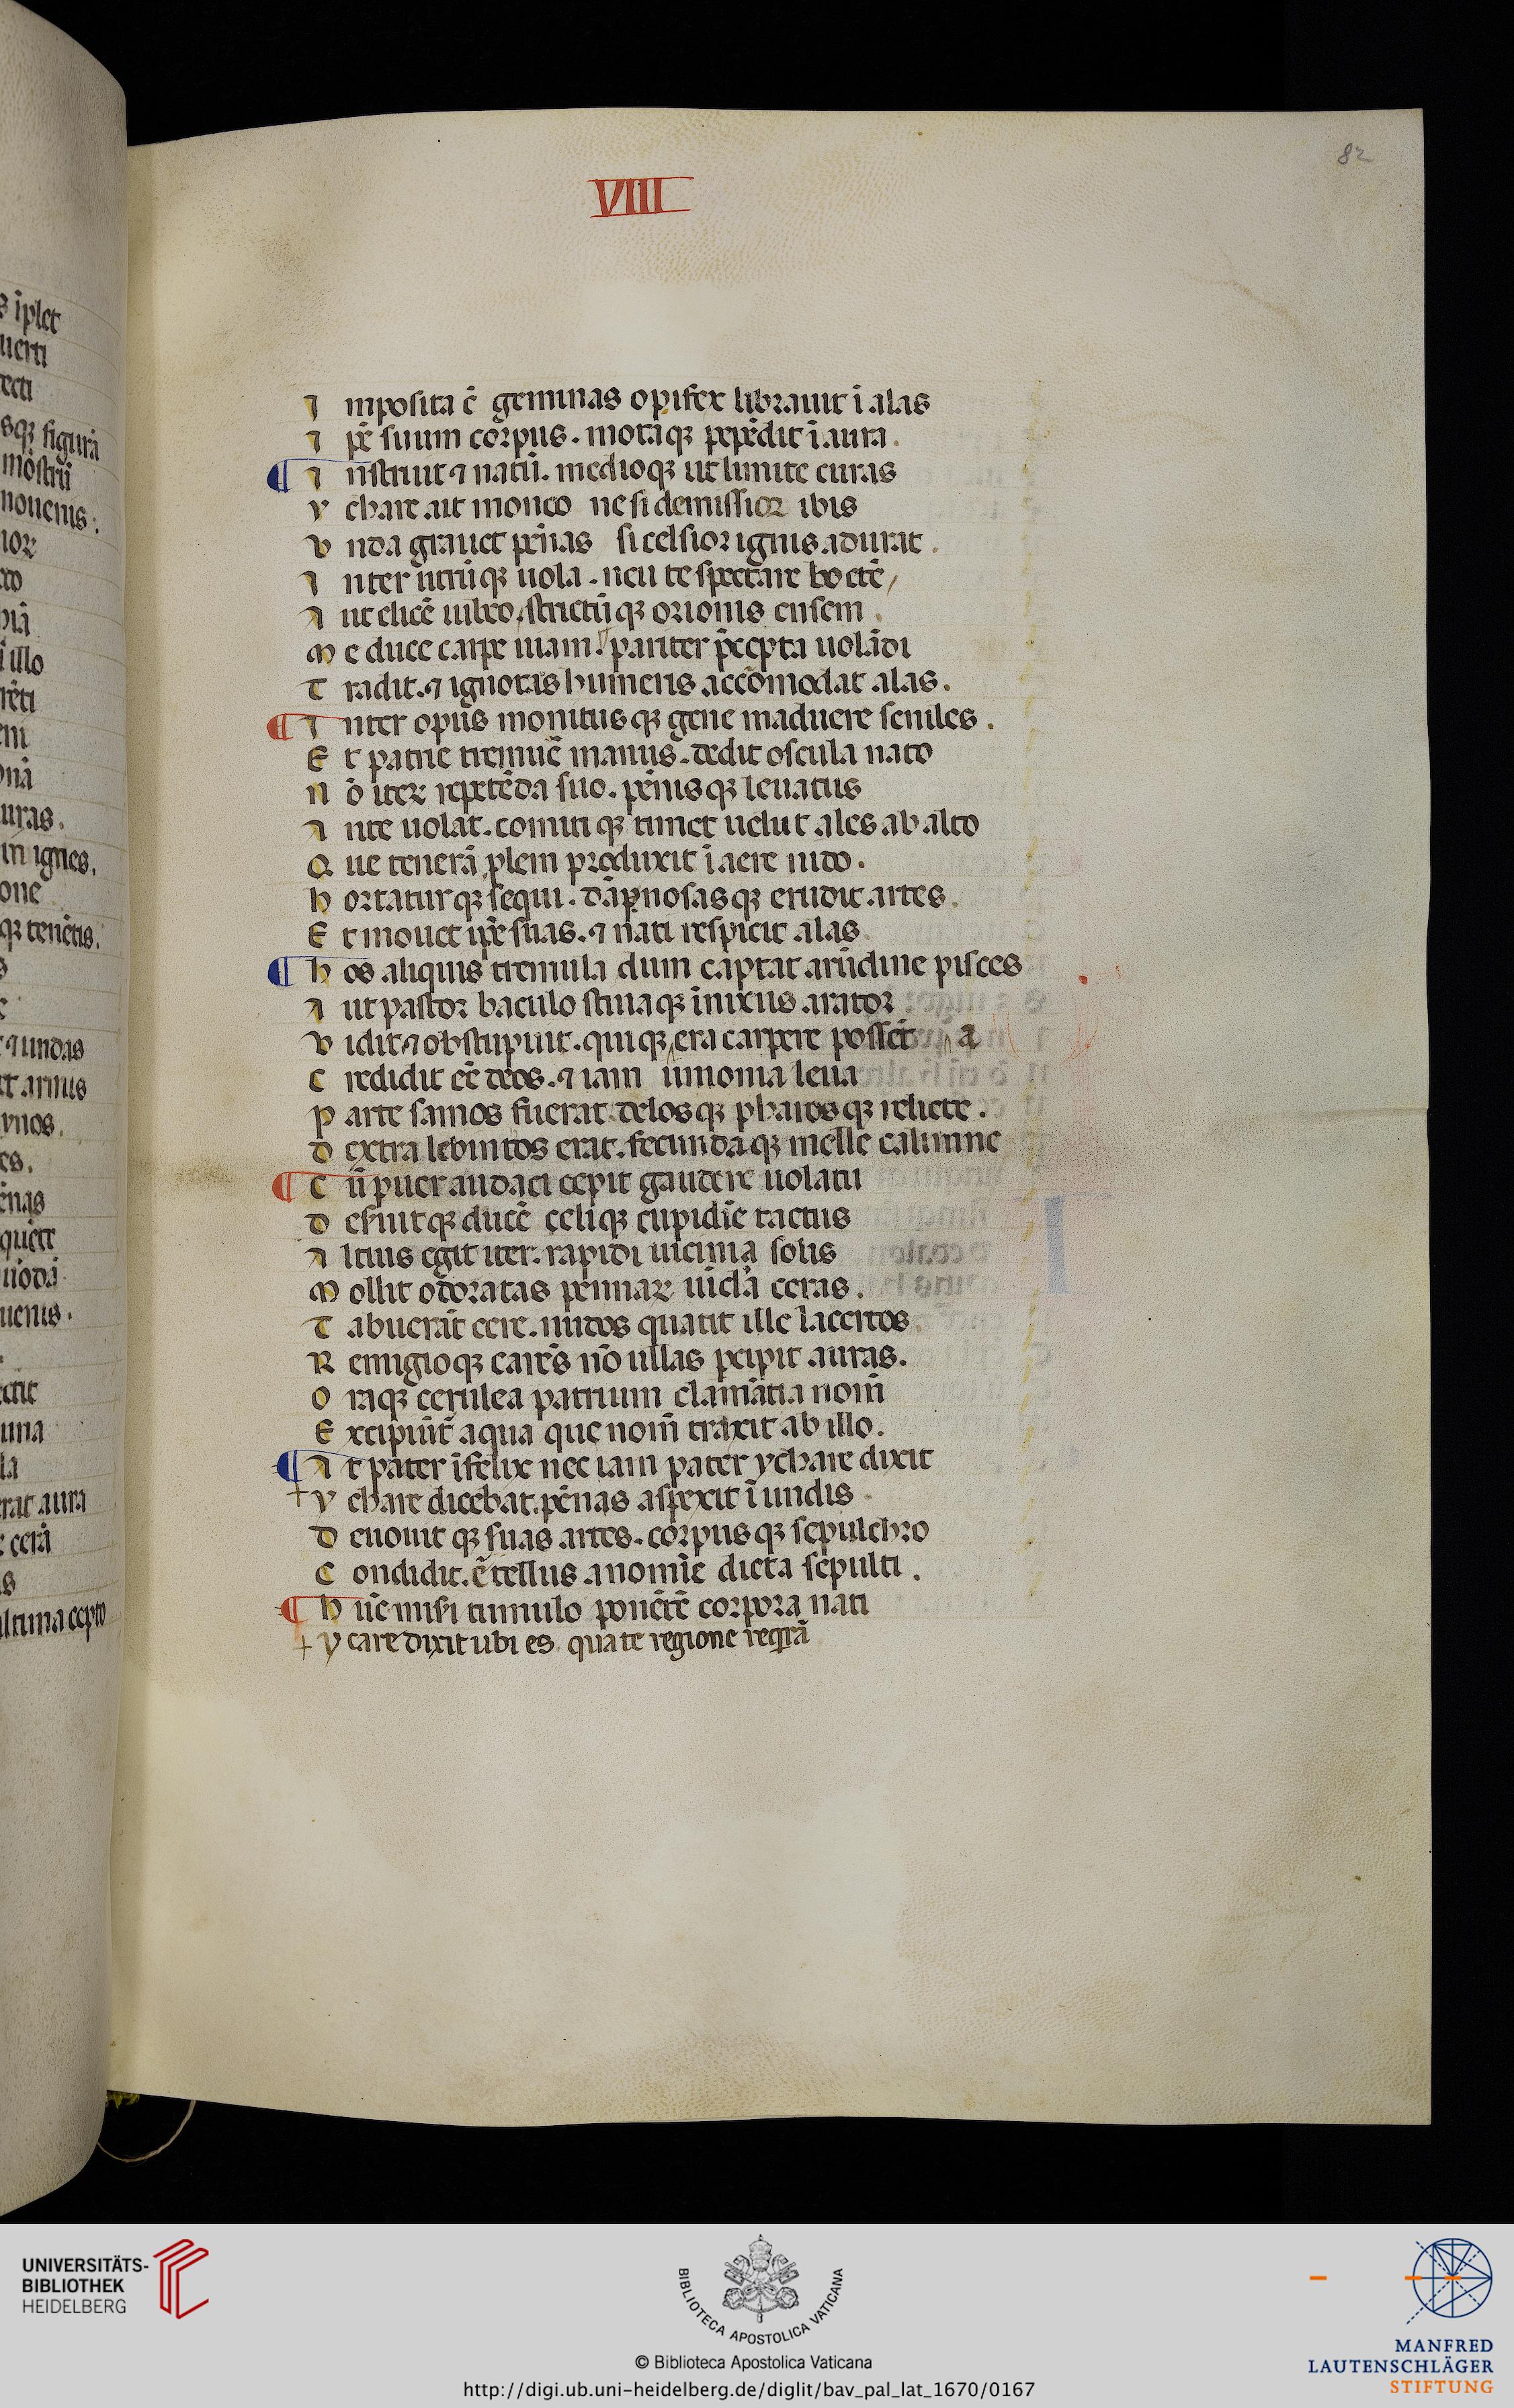 82
VIIII
s īplet
uerti
tecti
sqʒ figurā
mōstrū
nouenis:
illo
rēti
uras.
in ignes.
one
qʒ tenētis.
⁊ undas
ēnas
uenis.
una
la
rat aura
cerā
ultima cepto
I mposita ē geminas opifex librauit ī alas
I pē suum corpus. motaqʒ pepēdit ī aura.
¶ I nstruit ⁊ natū. medioqʒ ut limite curas
Y chare ait moneo ne si demissior ibis
V nda grauet pēnas si celsior ignis adurat.
I nter utrūqʒ uola. neu te spectare boetē/
A ut elicē iubeo/strictūqʒ orionis ensem.
M e duce carpe uiam. pariter p̄cepta uolādi
T radit. ⁊ ignotas humeris accōmodat alas.
¶ I nter opus monitusqʒ gene maduere seniles.
E t patrie tremuē manus. dedit oscula nato
N ō iterꝝ repetēda suo. pēnisqʒ leuatus
A nte uolat. comitiqʒ timet uelut ales ab alto
Q ue tenerā ꝓlem produxit ī aere nido.
H ortaturqʒ sequi. dāpnosasqʒ erudit artes.
E t mouet ipē suas. ⁊ nati respicit alas
¶ H os aliquis tremula dum captat arūdine pisces
A ut pastor baculo stiuaqʒ īnixus arator
V idit ⁊ obstupuit. quiqʒ era carpere possēt a
C redidit eē deos. ⁊ iam iunonia leua
P arte samos fuerat delosqʒ pharosqʒ relicte.
D extra lebintos erat. fecundaqʒ melle calimne
¶ C ū puer audaci cepit gaudere uolatu
D esruitqʒ ducē celiqʒ cupidīe tactus
A ltius egit iter. rapidi uicinia solis
M ollit odoratas pennaꝝ uīcla ceras.
T abuerāt cere. nudos quatit ille lacertos.
R emigioqʒ carēs nō ullas ꝑcipit auras.
O raqʒ cerulea patrium clamātia nom̄
E xcipiūt aqua que nom̄ traxit ab illo.
¶ A t pater īfelix nec iam pater ychare dixit
+ Y chare dicebat. pēnas aspexit ī undis
D euouit qʒ suas artes. corpusqʒ sepulchro
C ondidit. ē tellus a nomīe dicta sepulti.
¶ H ūc misi tumulo ponētē corpora nati
+ Y care dixit ubi es qua te regione reqrā
UNIVERSITÄTS-
BIBLIOTHEK
HEIDELBERG
BIBLIOTECA APOSTOLICA VATICANA
© Biblioteca Apostolica Vaticana
MANFRED
LAUTENSCHLÄGER
STIFTUNG
http://digi.ub.uni-heidelberg.de/diglit/bav_pal_lat_1670/0167